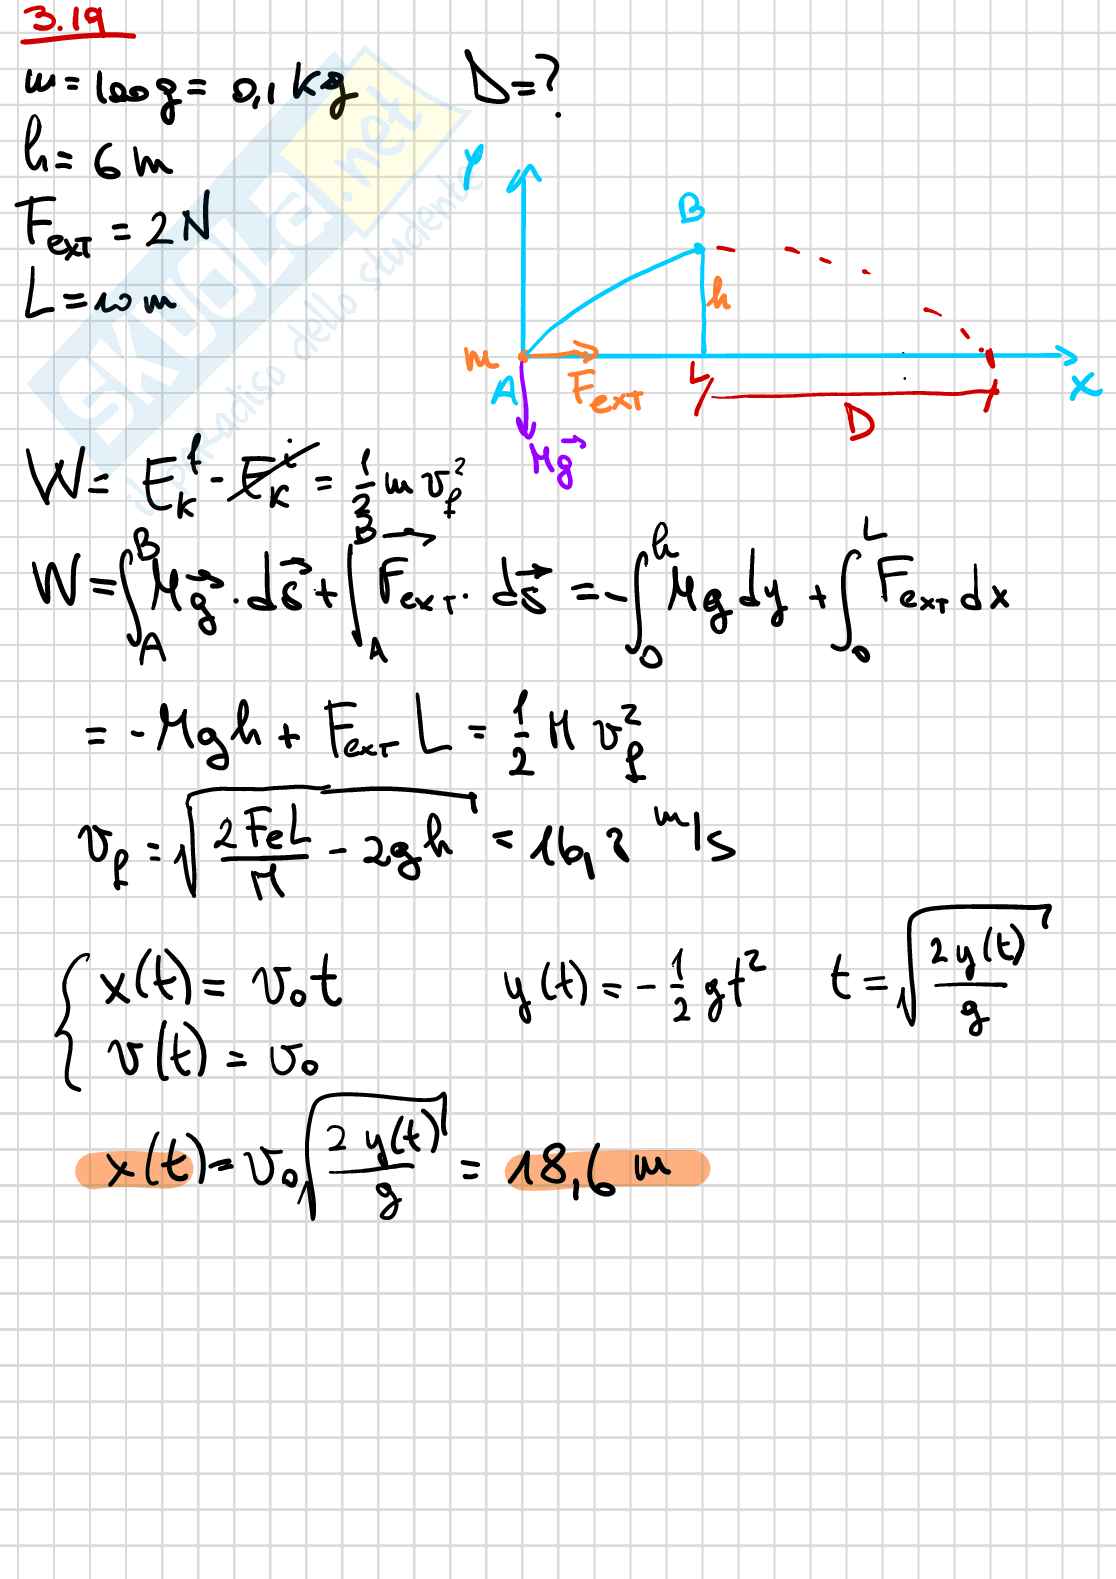 3.19
m = 100g = 0,1 kg
D = ?
h = 6 m
F_EXT = 2N
L = 10 m
Y
B
h
m
A
F_EXT
L
D
X
Mg⃗
SKUOLA.net
dello studente
W = E_K^f - E_K^i = 1/2 m v_f^2
W = ∫_A^B Mg⃗ · ds⃗ + ∫_A^B F⃗_EXT · ds⃗ = - ∫_0^h Mg dy + ∫_0^L F_EXT dx
= - Mgh + F_EXT L = 1/2 M v_f^2
v_f = √(2 Fe L / M - 2gh) = 16,8 m/s
x(t) = v_0 t
y(t) = - 1/2 g t^2
t = √(2 y(t) / g)
v(t) = v_0
x(t) = v_0 √(2 y(t) / g) = 18,6 m